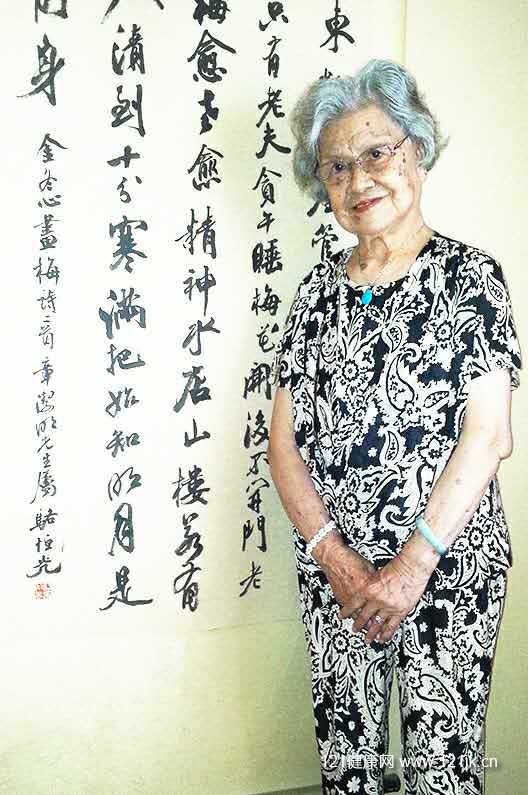 東 座管
只有老夫貪午睡梅花開後不開門 老
梅愈老愈精神水店山樓若有
人清到十分寒滿把始知明月是
前身
金冬心畫梅詩二首 章潔明先生屬 駱恒光
121健康网 www.121jk.cn